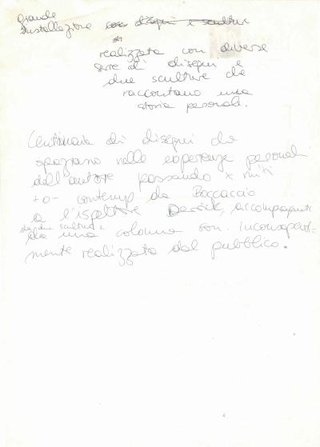 grande
installazione con disegni e sculture
realizzata con diverse
serie di disegni e
due sculture che
raccontano una
storia personale.
Centinaia di disegni che
spaziano nelle esperienze personali
dell'autore passando x miti
+o- contemp da Boccaccio
a l'ispettore Derrick, accompagnati
da due sculture e
da una colonna son. inconsapevol-
mente realizzata dal pubblico.